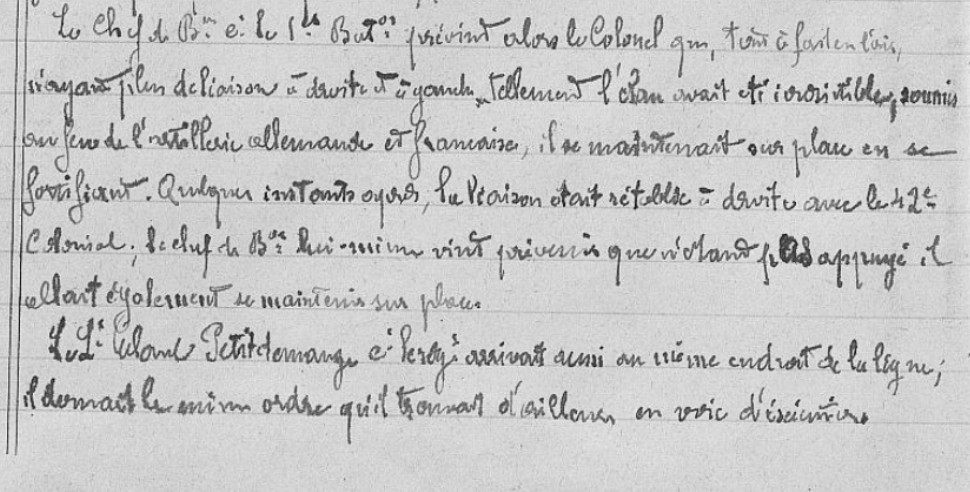 Le Chef de Bon ct le 1er Baton prévint alors le Colonel que, tout à fait en l'air,
n'ayant plus de liaison à droite et à gauche, tellement l'élan avait été irrésistible, soumis
au feu de l'artillerie allemande et française, il se maintenait sur place en se
fortifiant. Quelques instants après, la liaison était rétablie à droite avec le 42e
Colonial; le chef de Bon lui-même vint prévenir que n'étant pas appuyé il
allait également se maintenir sur place.
Le Lt Colonel Petitdemange ct le régt arrivait aussi au même endroit de la ligne;
il donnait le même ordre qu'il trouvait d'ailleurs en voie d'exécution.